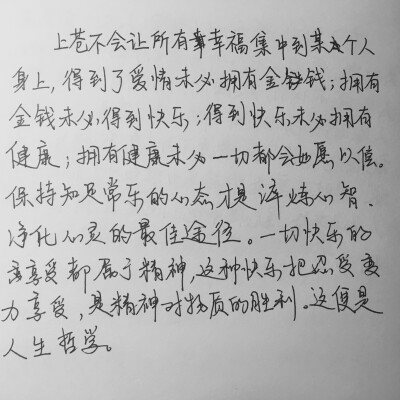 上苍不会让所有幸福集中到某个人
身上,得到了爱情未必拥有金钱;拥有
金钱未必得到快乐;得到快乐未必拥有
健康;拥有健康未必一切都会如愿以偿。
保持知足常乐的心态才是淬炼心智、
净化心灵的最佳途径。一切快乐的
享受都属于精神,这种快乐把忍受变
为享受,是精神对物质的胜利。这便是
人生哲学。